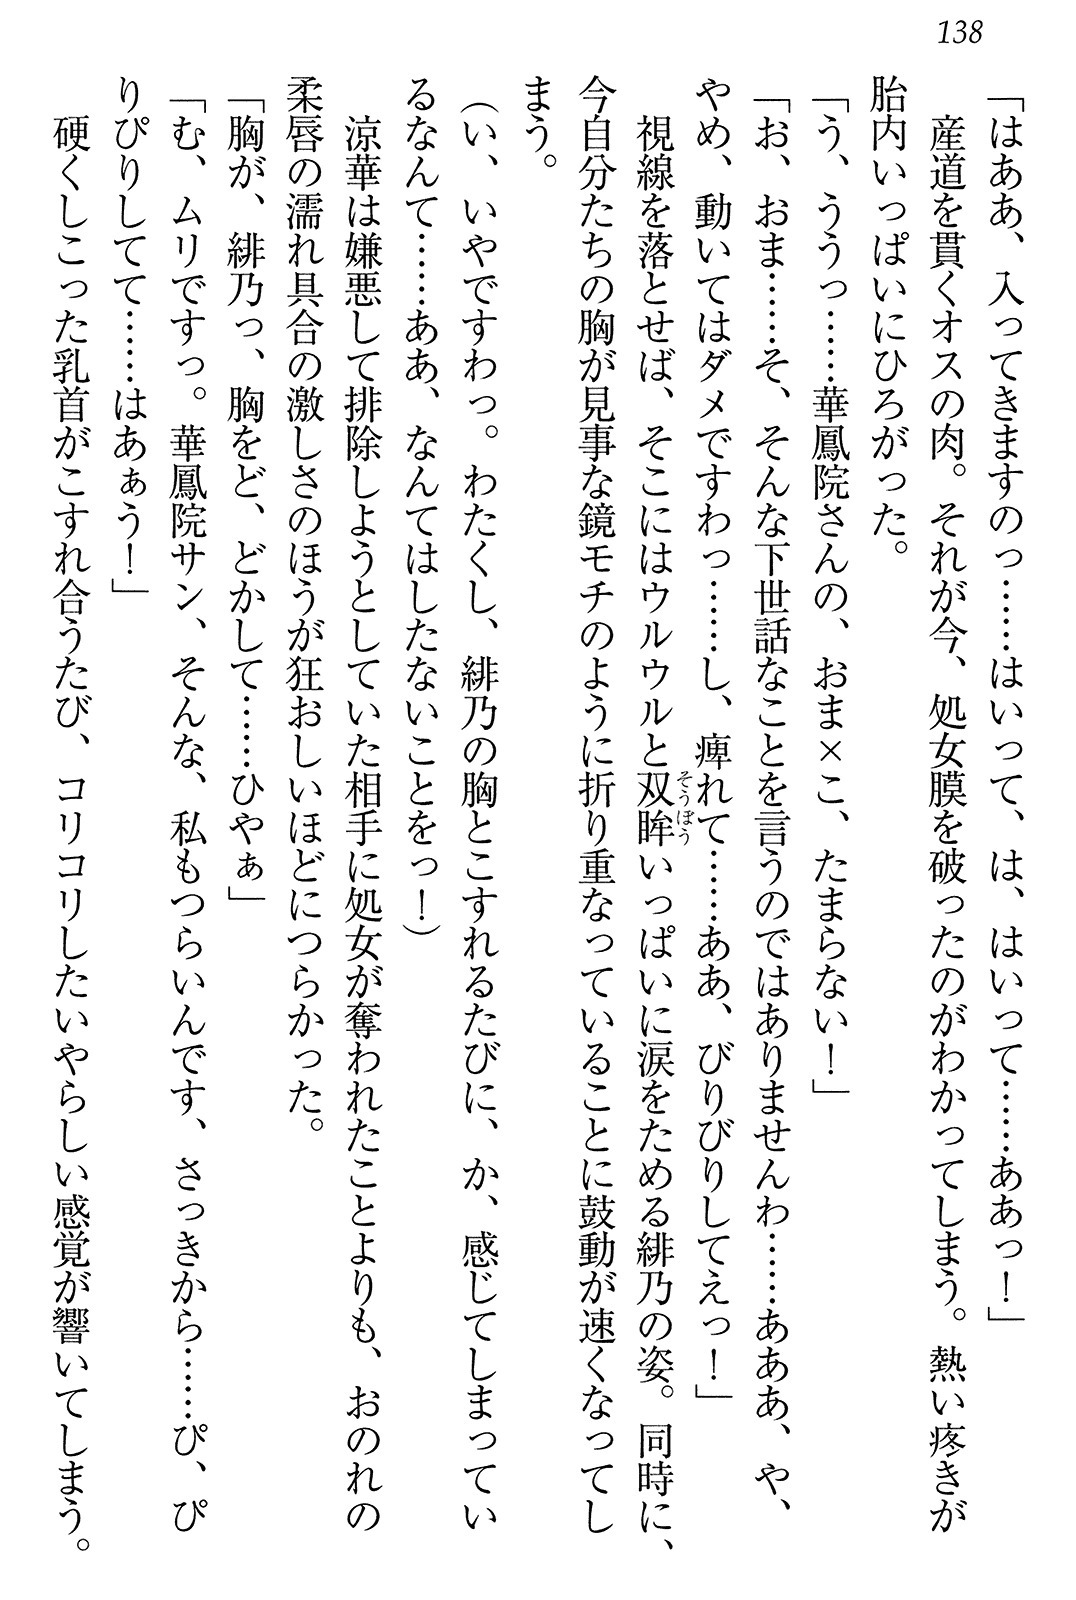 138
「はああ、入ってきますのっ……はいって、は、はいって……ああっ！」
産道を貫くオスの肉。それが今、処女膜を破ったのがわかってしまう。熱い疼きが
胎内いっぱいにひろがった。
「う、ううっ……華鳳院さんの、おま×こ、たまらない！」
「お、おま……そ、そんな下世話なことを言うのではありませんわ……あああ、や、
やめ、動いてはダメですわっ……し、痺れて……ああ、びりびりしてえっ！」
視線を落とせば、そこにはウルウルと双眸いっぱいに涙をためる緋乃の姿。同時に、
そうぼう
今自分たちの胸が見事な鏡モチのように折り重なっていることに鼓動が速くなってし
まう。
（い、いやですわっ。わたくし、緋乃の胸とこすれるたびに、か、感じてしまってい
るなんて……ああ、なんてはしたないことをっ！）
涼華は嫌悪して排除しようとしていた相手に処女が奪われたことよりも、おのれの
柔唇の濡れ具合の激しさのほうが狂おしいほどにつらかった。
「胸が、緋乃っ、胸をど、どかして……ひやぁ」
「む、ムリですっ。華鳳院サン、そんな、私もつらいんです、さっきから……ぴ、ぴ
りぴりしてて……はあぁう！」
硬くしこった乳首がこすれ合うたび、コリコリしたいやらしい感覚が響いてしまう。